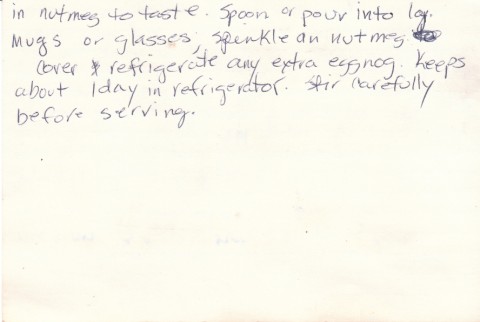 in nutmeg to taste. Spoon or pour into lg.
mugs or glasses; sprinkle on nutmeg.
Cover & refrigerate any extra eggnog. Keeps
about 1 day in refrigerator. Stir carefully
before serving.